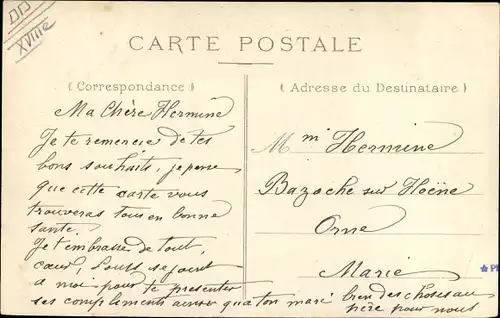 DD
XVIIIe
CARTE POSTALE
(Correspondance)
Ma Chère Hermine
Je te remercie de tes
bons souhaits, je pense
que cette carte vous
trouveras tous en bonne
santé.
Je t'embrasse de tout,
cœur, Louis se joint
a moi pour te presenter
ses compliments ainsi qua ton mari bien des choses au
père pour nous
(Adresse du Destinataire)
Mme Hermine
Bazoche sur Hoëne
Orne
Marie